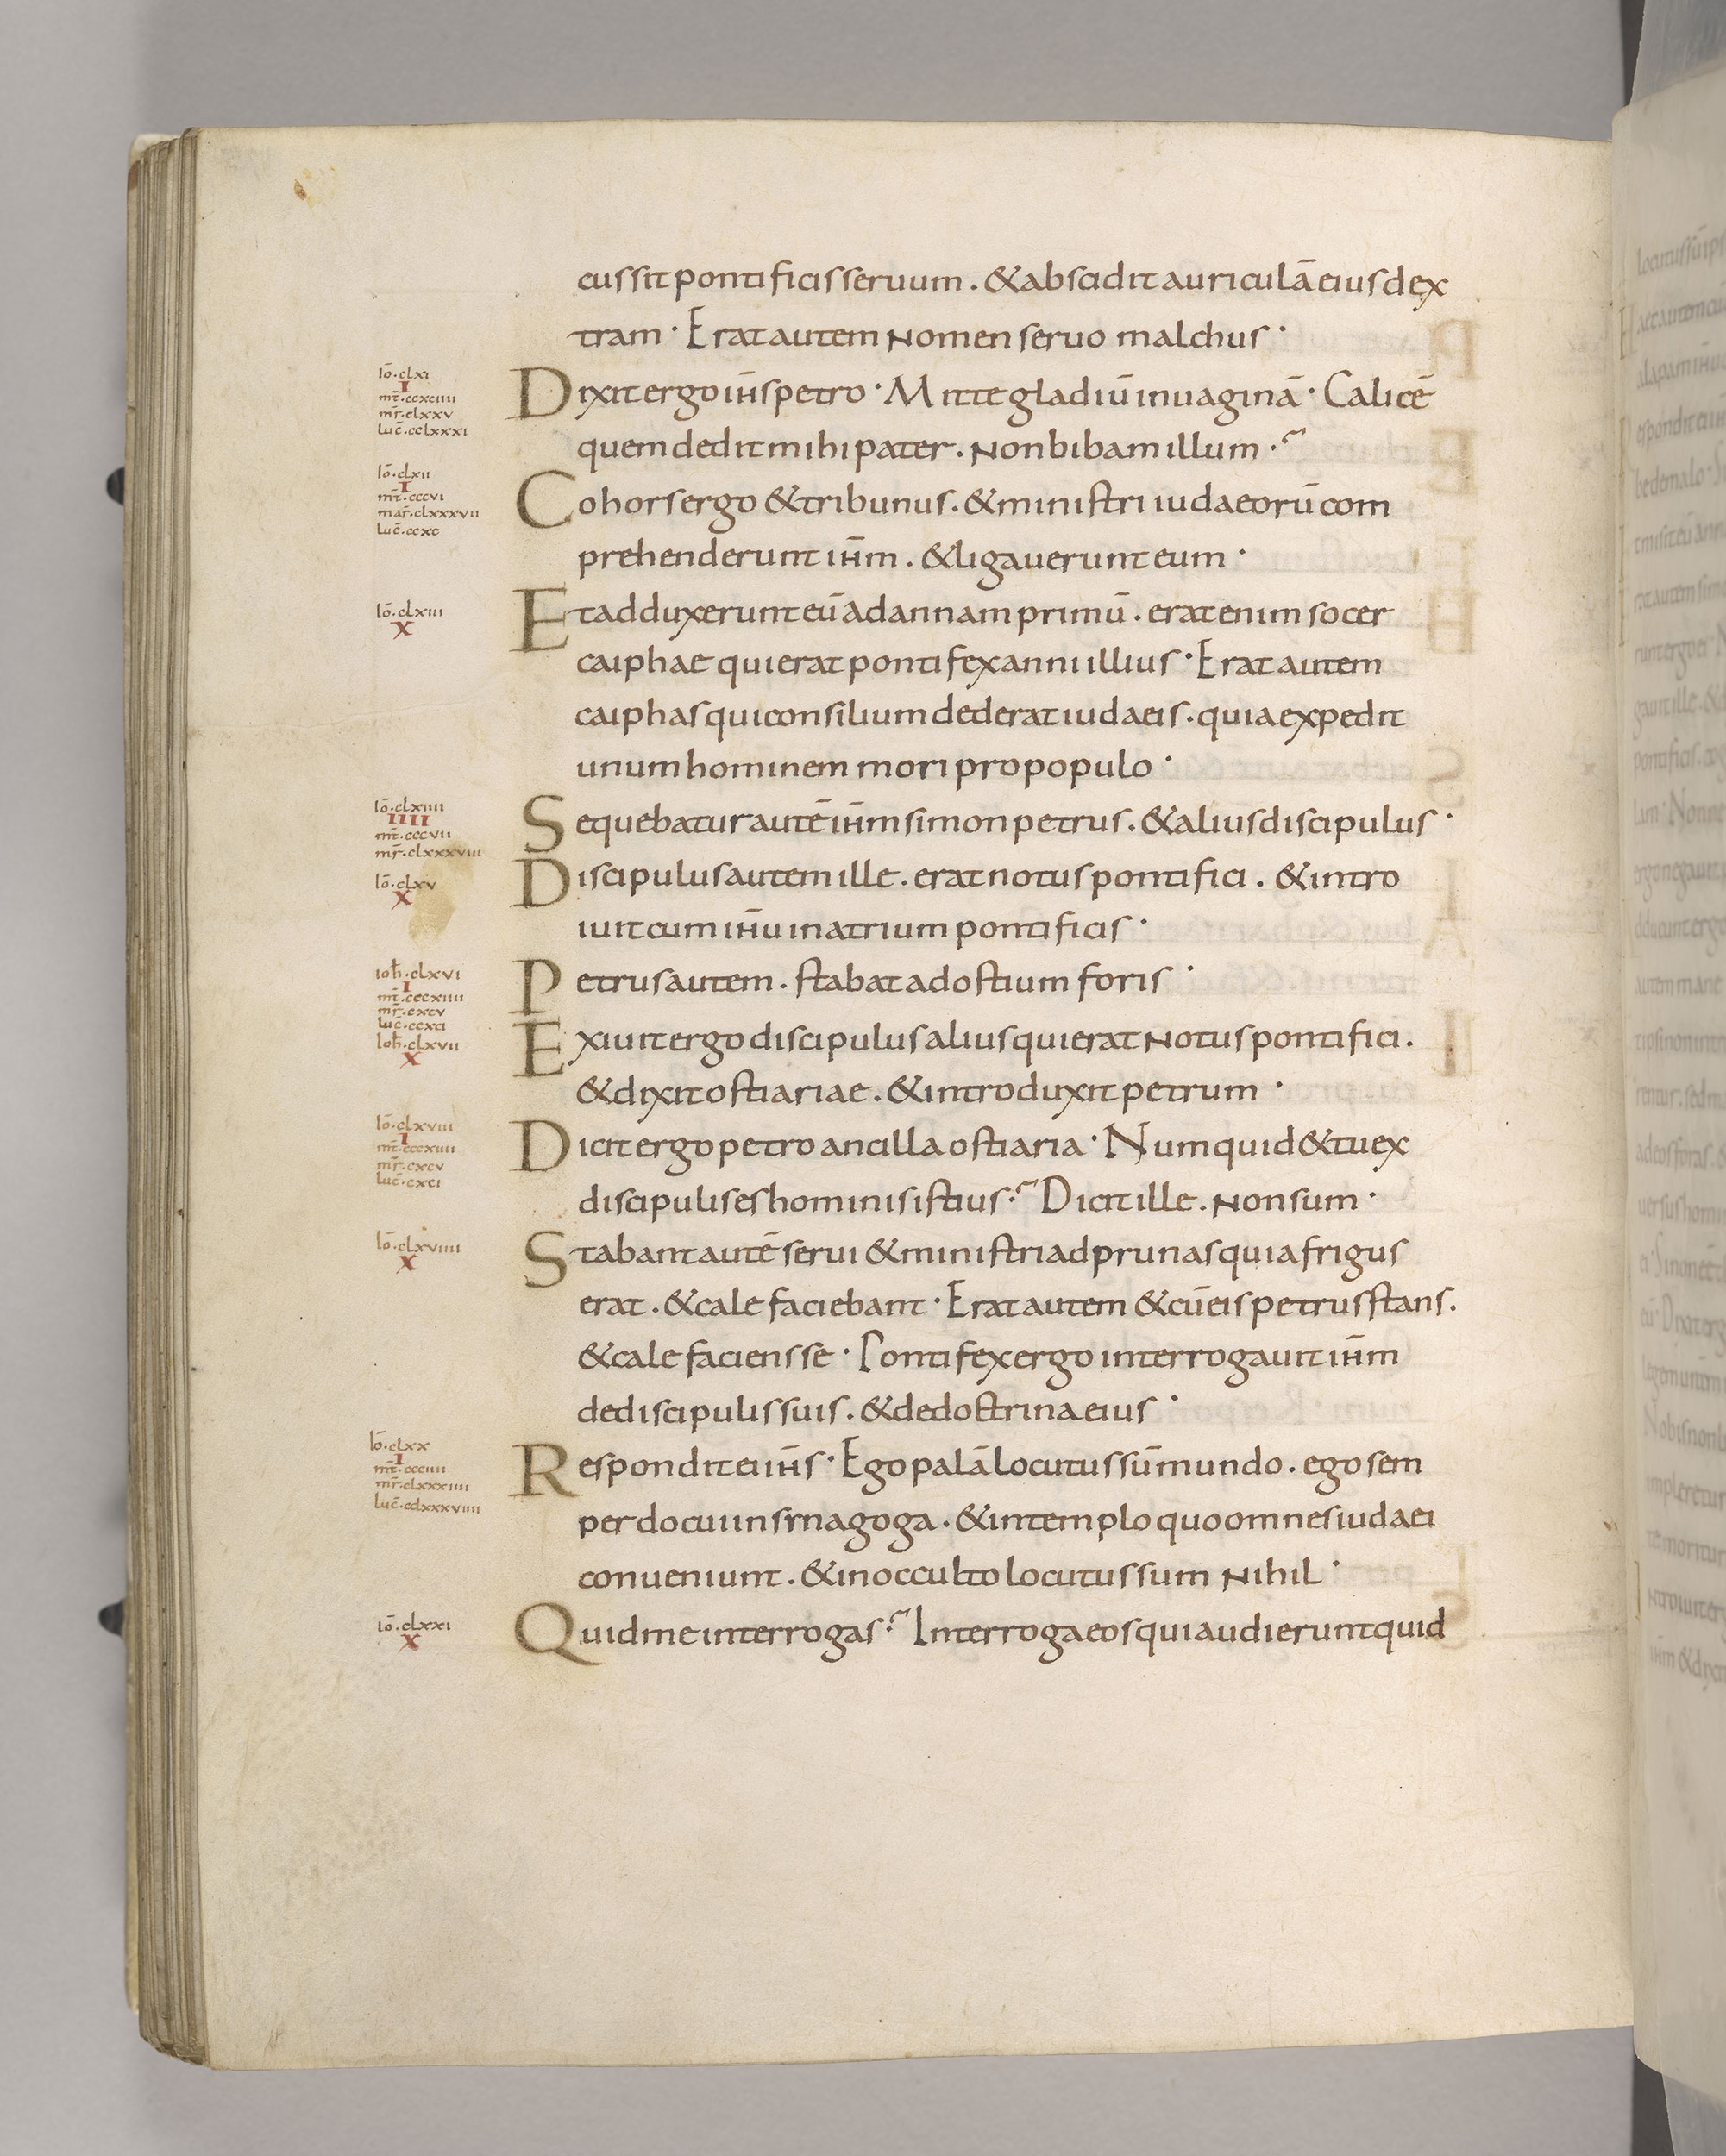 cussit pontificis seruum. & abscidit auriculā eius dex
tram · Erat autem nomen seruo malchus ·
Iō·clxi
I
mt̄·ccxciiii
mr̄·clxxv
luc̄·cclxxxi
Dixit ergo ih̄s petro · Mitte gladiū in uaginā · Calicē
quem dedit mihi pater. non bibam illum ·
Iō·clxii
I
mt̄·cccvi
mar̄·clxxxvii
luc̄·ccxc
Cohors ergo & tribunus. & ministri iudaeorū com
prehenderunt ih̄m. & ligauerunt eum ·
Iō·clxiii
X
Et adduxerunt eū ad annam primū. erat enim socer
caiphae qui erat pontifex anni illius · Erat autem
caiphas qui consilium dederat iudaeis. quia expedit
unum hominem mori pro populo ·
Iō·clxiiii
IIII
mt̄·cccvii
mr̄·clxxxviii
Sequebatur autē ih̄m simon petrus. & alius discipulus ·
Iō·clxv
X
Discipulus autem ille. erat notus pontifici. & intro
iuit cum ih̄u in atrium pontificis ·
ioh̄·clxvi
I
mt̄·cccxiiii
mr̄·cxcv
luc̄·ccxci
Petrus autem. stabat ad ostium foris ·
Ioh̄·clxvii
X
Exiuit ergo discipulus alius qui erat notus pontifici.
& dixit ostiariae. & introduxit petrum ·
Iō·clxviii
I
mt̄·cccxiiii
mr̄·cxcv
luc̄·cxci
Dicit ergo petro ancilla ostiaria · Numquid & tu ex
discipulis es hominis istius? Dicit ille. non sum ·
Iō·clxviiii
X
Stabant autē serui & ministri ad prunas quia frigus
erat. & calefaciebant · Erat autem & cū eis petrus stans.
& calefaciens se · Pontifex ergo interrogauit ih̄m
de discipulis suis. & de doctrina eius ·
Iō·clxx
I
mt̄·ccciiii
mr̄·clxxxiiii
luc̄·cclxxxviiii
Respondit ei ih̄s · Ego palā locutus sū mundo. ego sem
per docui in synagoga. & in templo quo omnes iudaei
conueniunt. & in occulto locutus sum nihil ·
Iō·clxxi
X
Quid me interrogas? Interroga eos qui audierunt quid